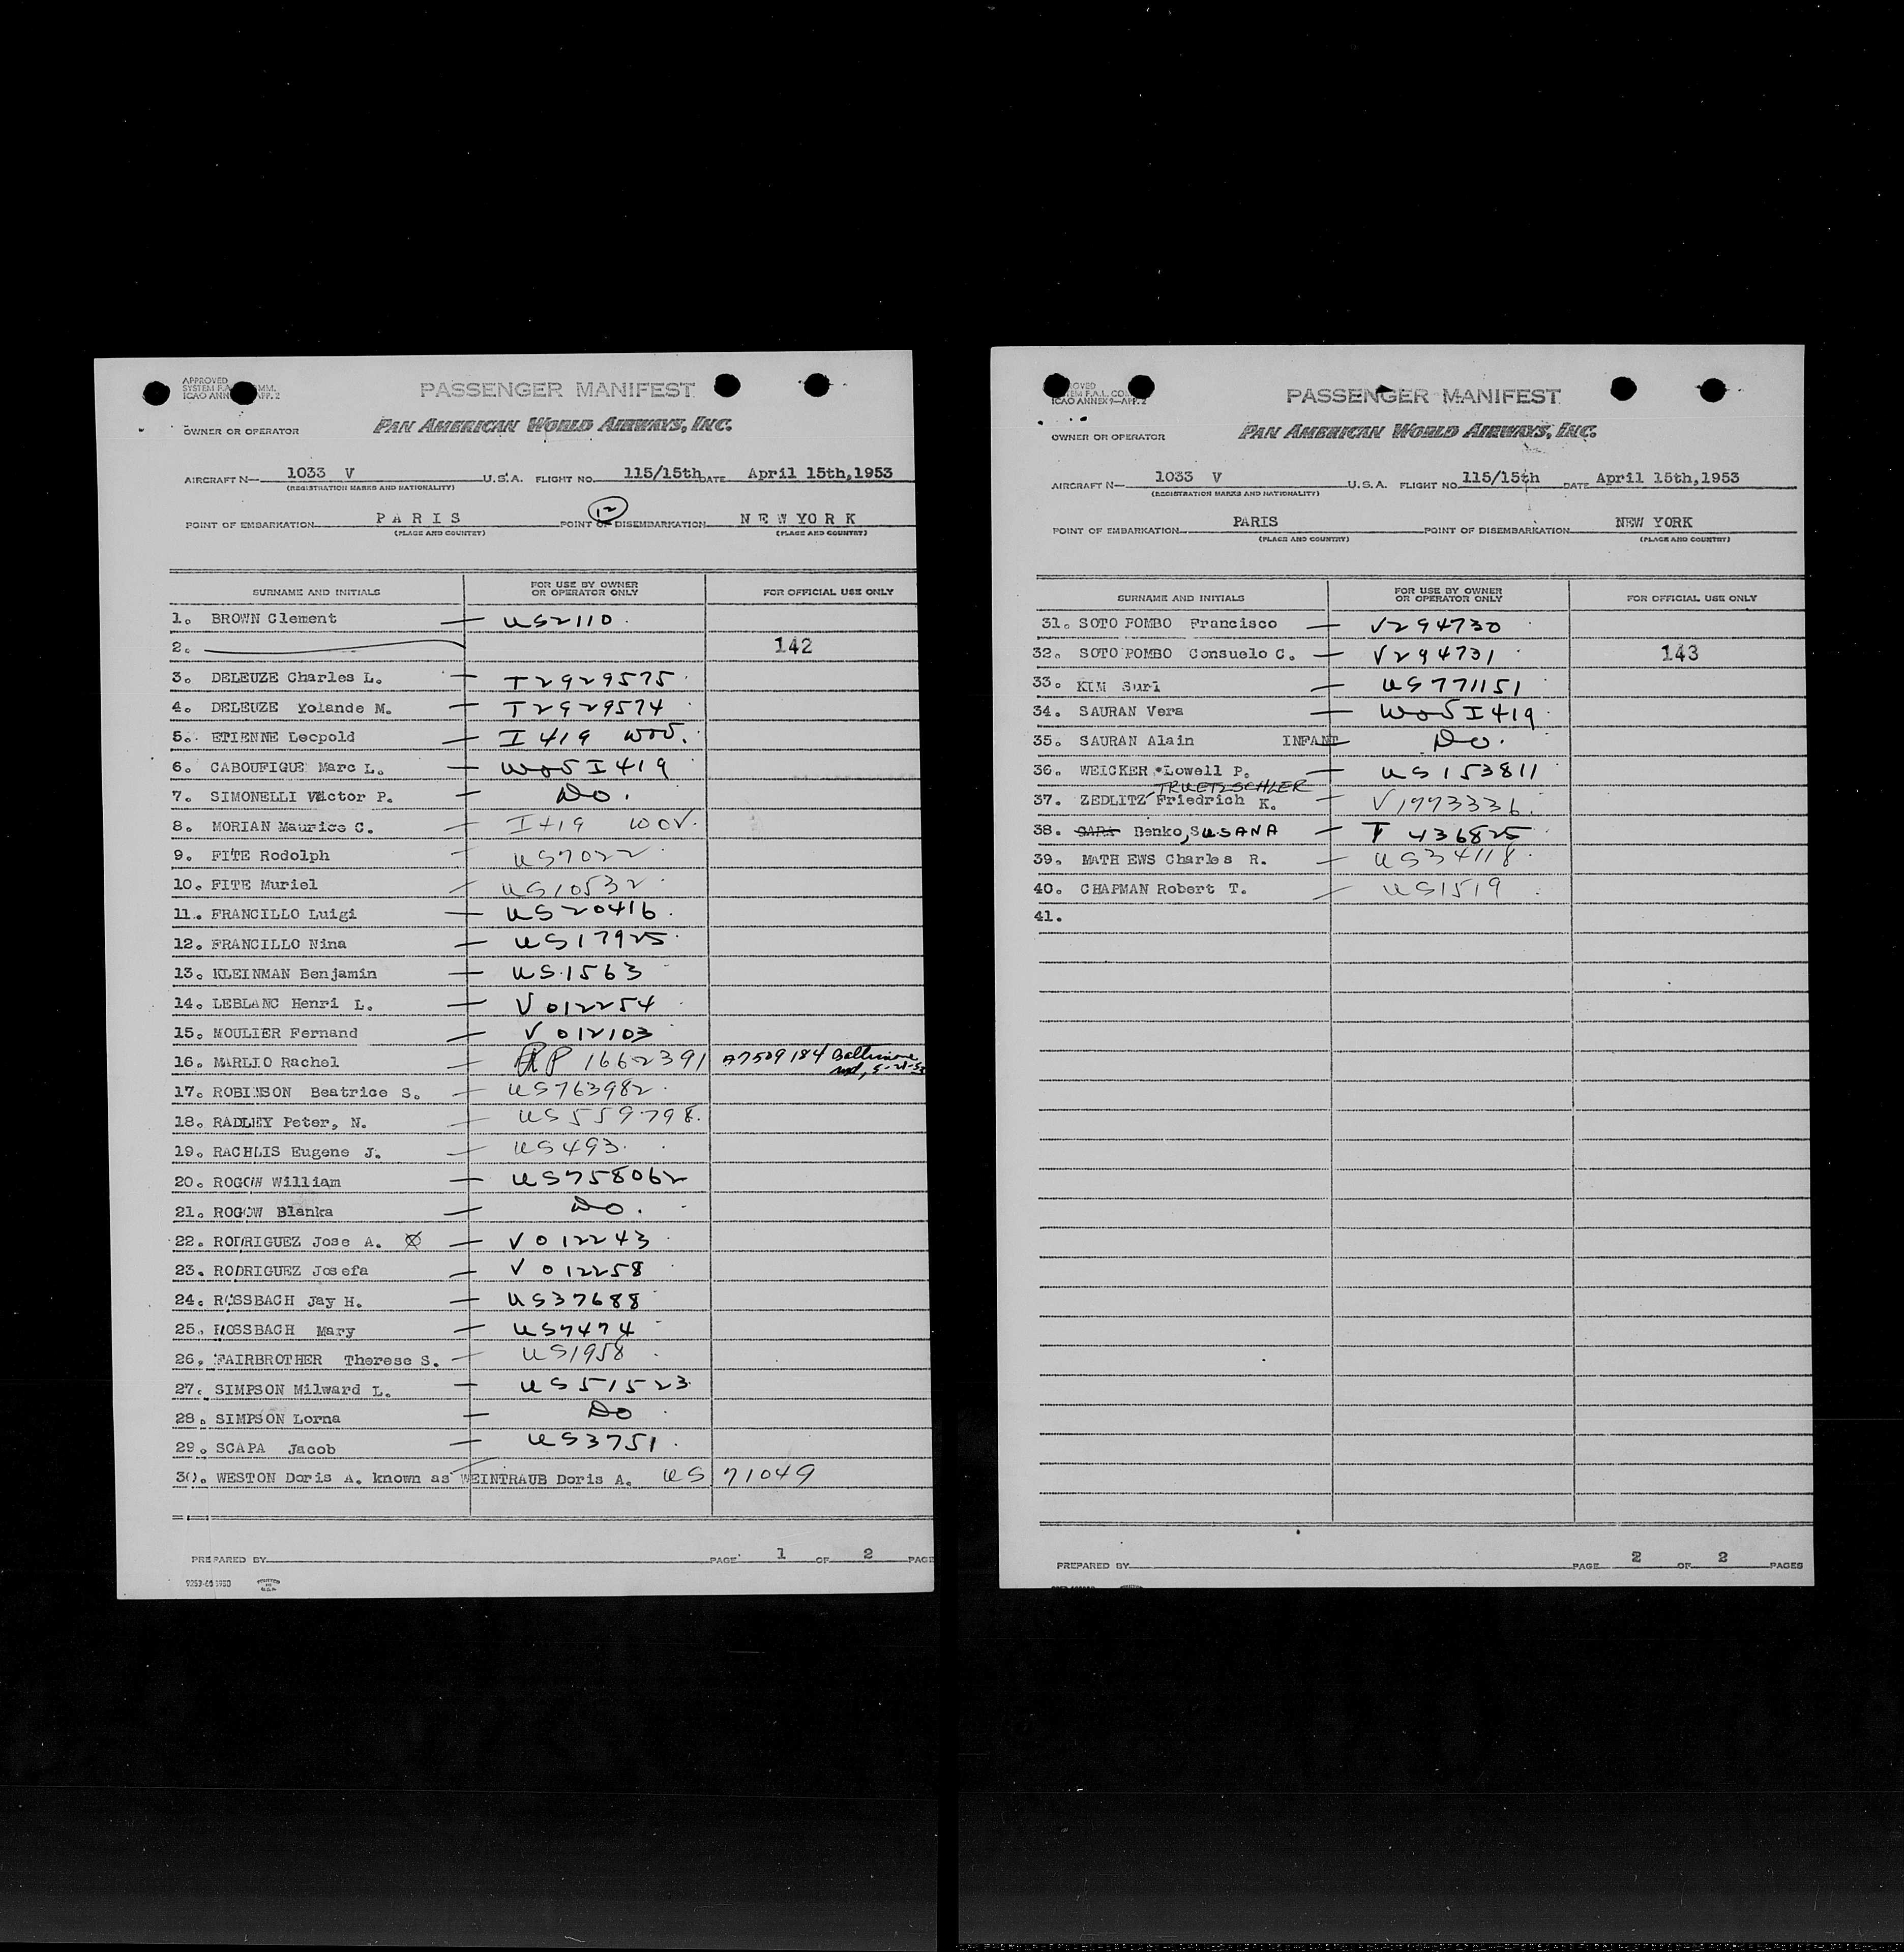 APPROVED
SYSTEM F.A. MM.
ICAO ANN APP. 2
PASSENGER MANIFEST
OWNER OR OPERATOR PAN AMERICAN WORLD AIRWAYS, INC.
AIRCRAFT N— 1033 V U.S.A. FLIGHT NO. 115/15th DATE April 15th,1953
(REGISTRATION MARKS AND NATIONALITY)
12
POINT OF EMBARKATION PARIS POINT OF DISEMBARKATION NEW YORK
(PLACE AND COUNTRY) (PLACE AND COUNTRY)
SURNAME AND INITIALS FOR USE BY OWNER OR OPERATOR ONLY FOR OFFICIAL USE ONLY
1. BROWN Clement — US2110
2. 142
3. DELEUZE Charles L. — T2929575
4. DELEUZE Yolande M. — T2929574
5. ETIENNE Leopold — I 419 WOV.
6. CABOUFIGUE Marc L. — WOV I 419
7. SIMONELLI Victor P. — Do.
8. MORIAN Maurice C. — I419 WOV.
9. FITE Rodolph — US7022
10. FITE Muriel — US10532
11. FRANCILLO Luigi — US20416
12. FRANCILLO Nina — US17925
13. KLEINMAN Benjamin — US1563
14. LEBLANC Henri L. — V012254
15. MOULIER Fernand — V012103
16. MARLIO Rachel — RP 1662391 A7509184 Baltimore
Md, 5-21-53
17. ROBINSON Beatrice S. — US763982
18. RADLEY Peter, N. — US559798
19. RACHLIS Eugene J. — US493
20. ROGOW William — US758062
21. ROGOW Blanka — Do.
22. RODRIGUEZ Jose A. — V012243
23. RODRIGUEZ Josefa — V012258
24. ROSSBACH Jay H. — US37688
25. ROSSBACH Mary — US7474
26. FAIRBROTHER Therese S. — US1958
27. SIMPSON Milward L. — US51523
28. SIMPSON Lorna — Do
29. SCAPA Jacob — US3751
30. WESTON Doris A. known as WEINTRAUB Doris A. US 71049
PREPARED BY PAGE 1 OF 2 PAGE
PRINTED IN U.S.A.
OVED
TEM F.A.L. CO
ICAO ANNEX 9—APP. 2
PASSENGER MANIFEST
OWNER OR OPERATOR PAN AMERICAN WORLD AIRWAYS, INC.
AIRCRAFT N— 1033 V U.S.A. FLIGHT NO. 115/15th DATE April 15th,1953
(REGISTRATION MARKS AND NATIONALITY)
POINT OF EMBARKATION PARIS POINT OF DISEMBARKATION NEW YORK
(PLACE AND COUNTRY) (PLACE AND COUNTRY)
SURNAME AND INITIALS FOR USE BY OWNER OR OPERATOR ONLY FOR OFFICIAL USE ONLY
31. SOTO POMBO Francisco — V294730
32. SOTO POMBO Consuelo C. — V294731 143
33. KIM Suri — US771151
34. SAURAN Vera — WOV I419
35. SAURAN Alain INFANT — Do.
36. WEICKER Lowell P. — US153811
TRUETZSCHLER
37. ZEDLITZ Friedrich K. — V1993336
38. SARA Benko, SUSANA — T 436825
39. MATH EWS Charles R. — US34118
40. CHAPMAN Robert T. — US1519
41.
PREPARED BY PAGE 2 OF 2 PAGES